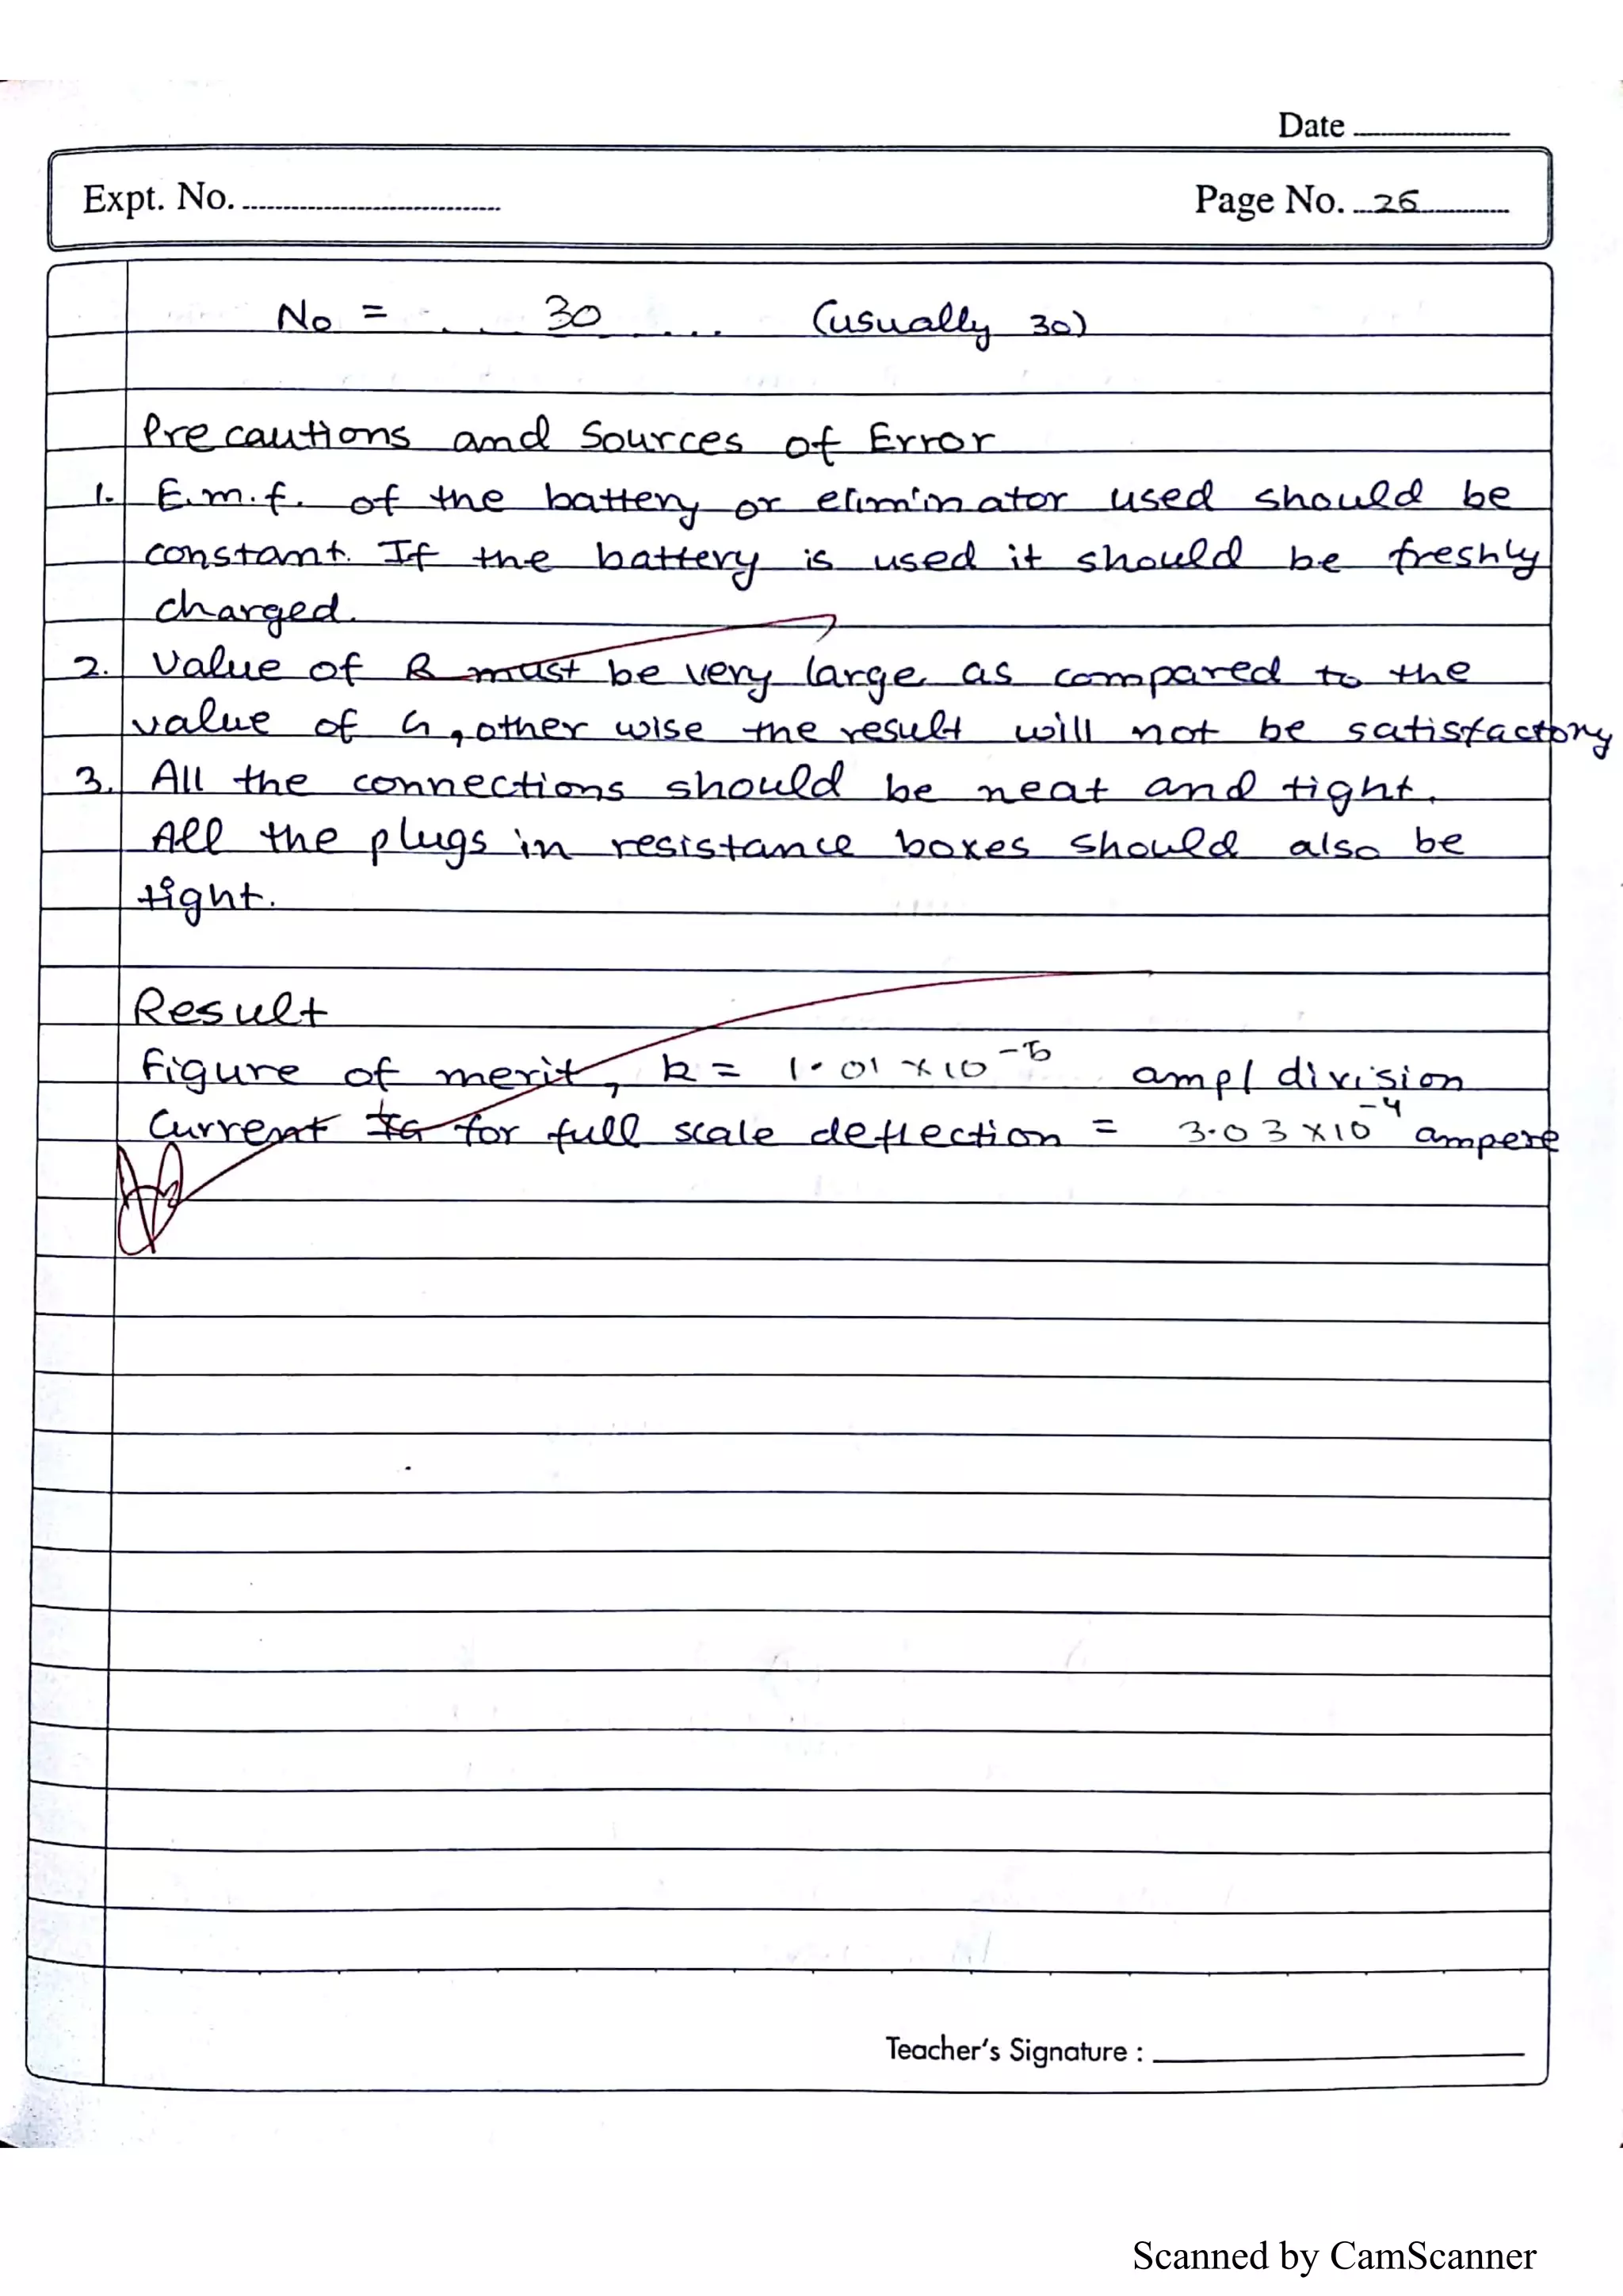 Date
Expt. No.
Page No. 26
No = . . . 30 . . . . (usually 30)
Precautions and Sources of Error
1. E.m.f. of the battery or eliminator used should be
constant. If the battery is used it should be freshly
charged.
2. Value of R must be very large as compared to the
value of G, other wise the result will not be satisfactory
3. All the connections should be neat and tight.
All the plugs in resistance boxes should also be
tight.
Result
Figure of merit, k = 1.01 × 10⁻⁵ amp/ division
Current IG for full scale deflection = 3.03 ×10⁻⁴ ampere
Teacher's Signature :
Scanned by CamScanner